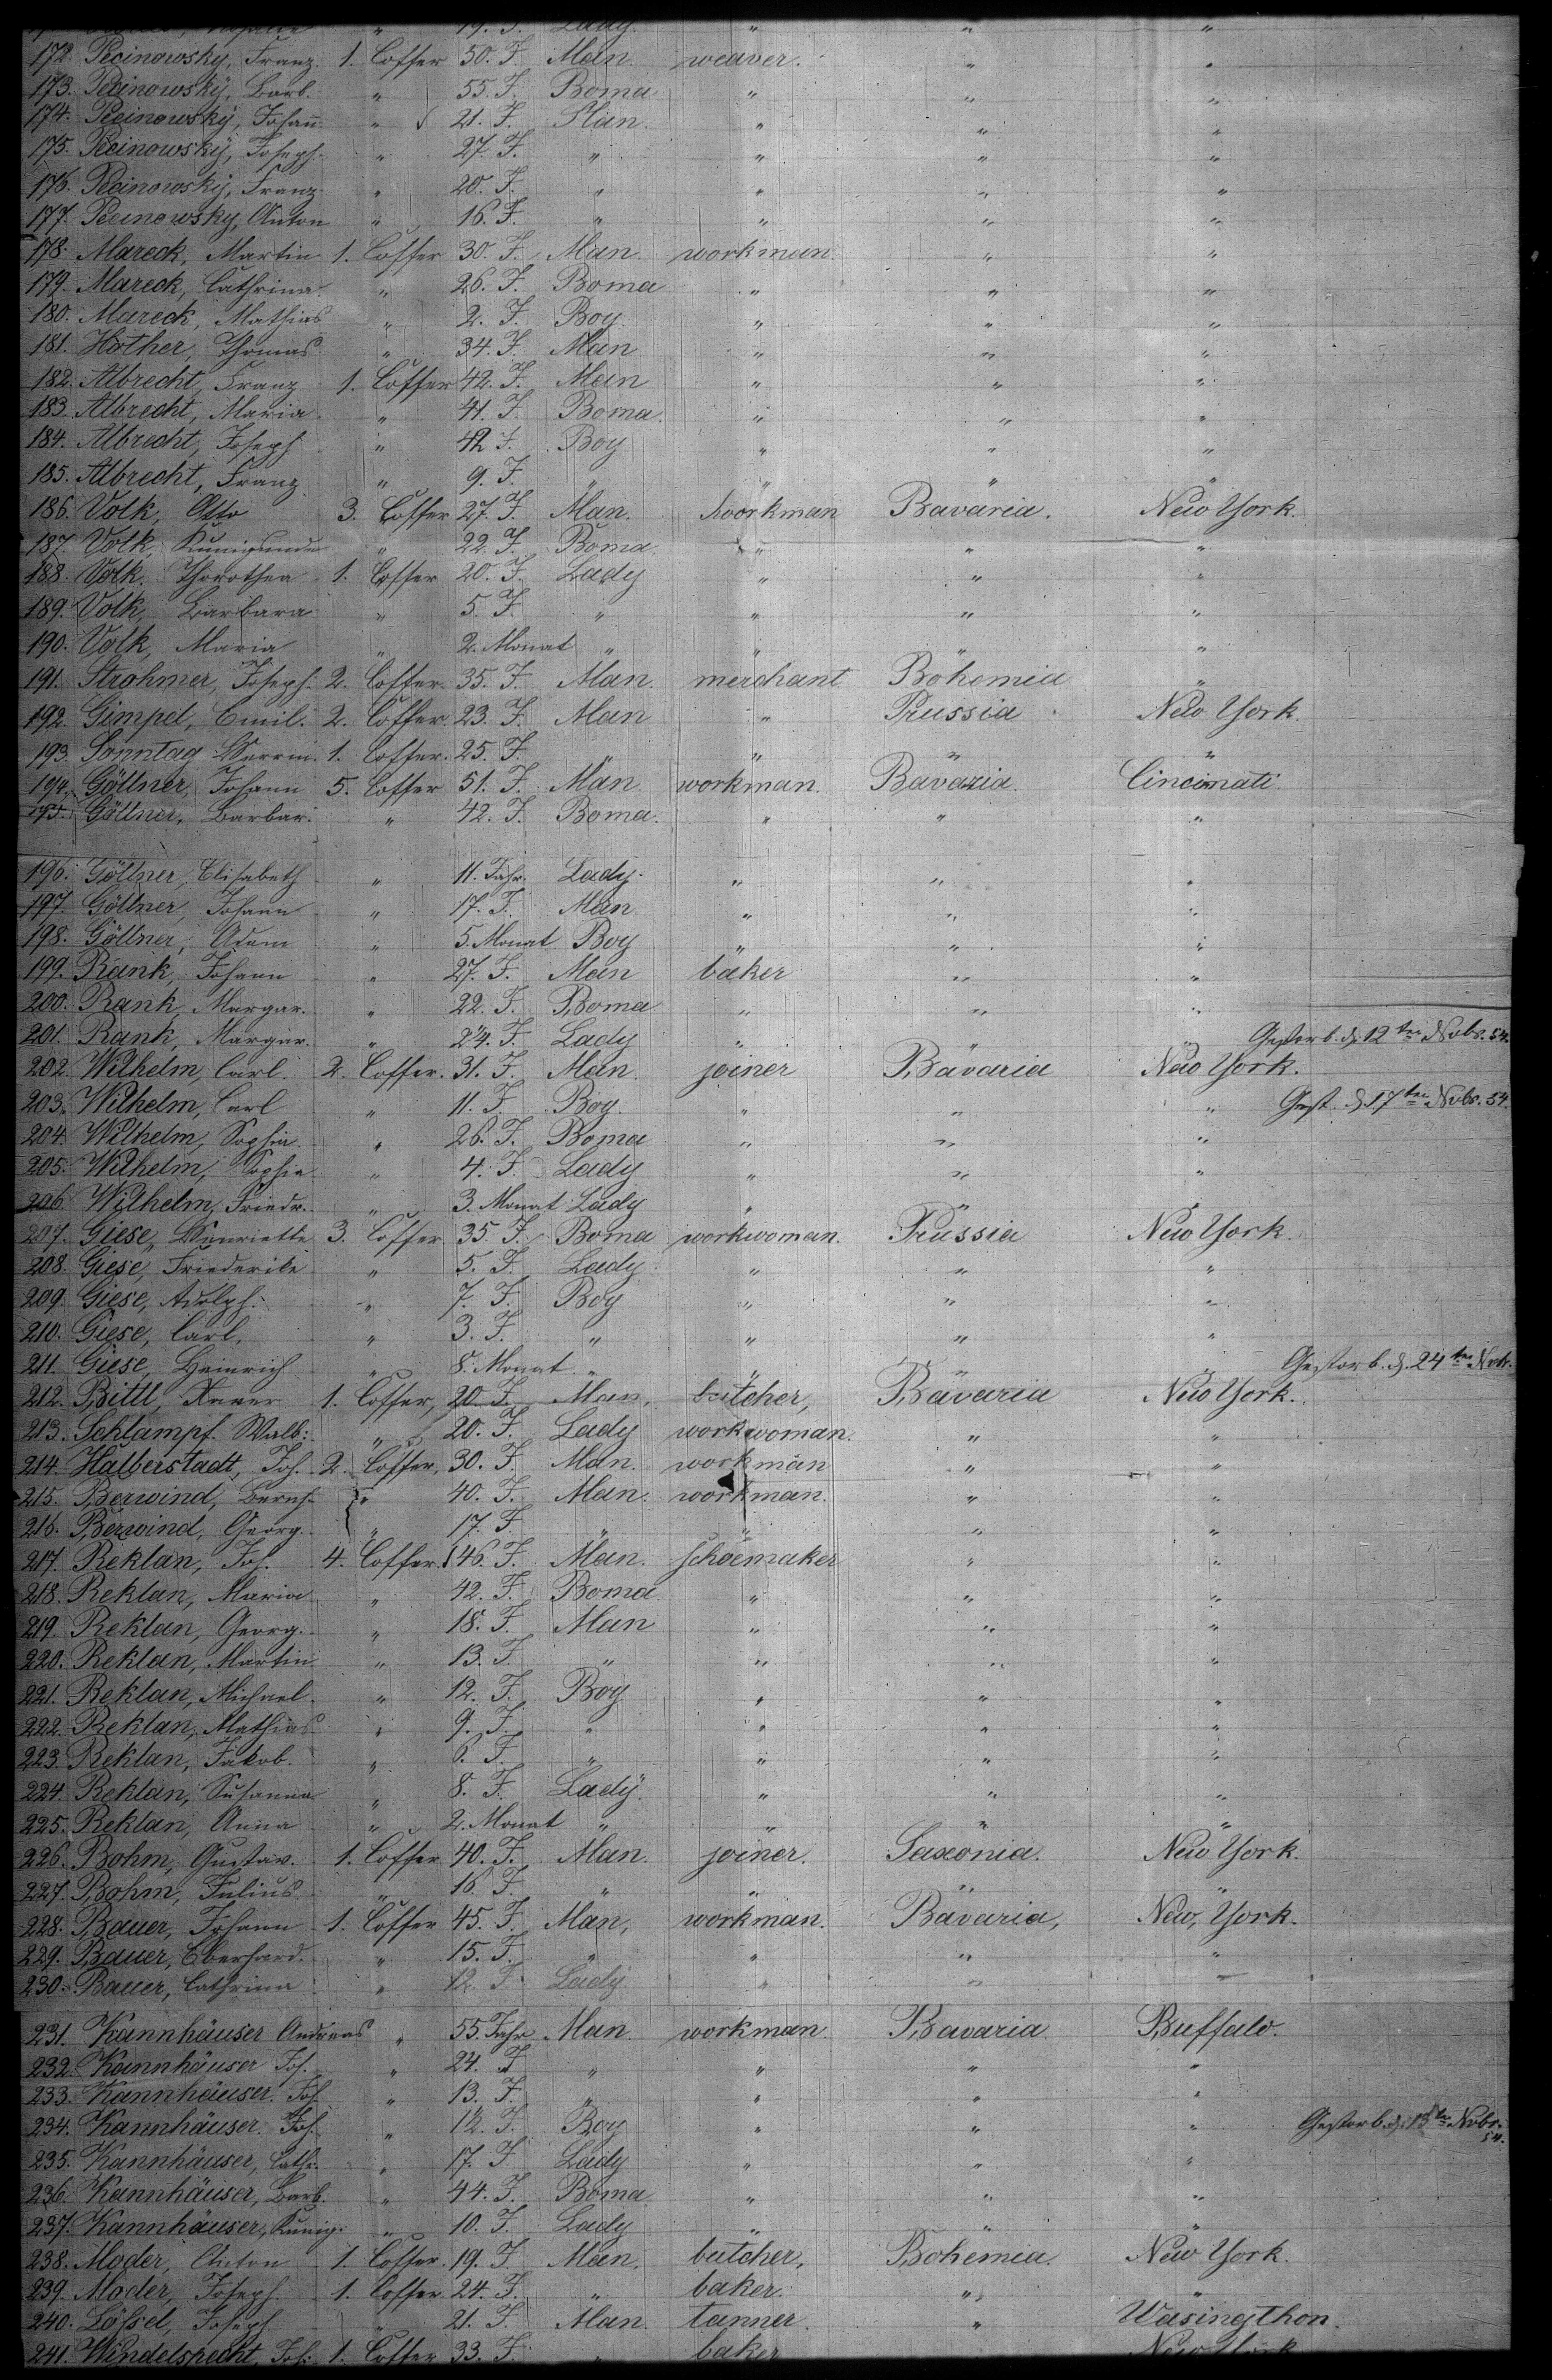 " 19. J. Lady " " "
172. Pecinowsky, Franz. 1. Coffer 50. J. Man. weaver. " "
173. Pecinowsky, Barb. " 55. J. Boma " " "
174. Pecinowsky, Johañ " 21. J. Man. " " "
175. Pecinowsky, Joseph. " 27. J. " " " "
176. Pecinowsky, Franz. " 20. J. " " " "
177. Pecinowsky, Anton " 16. J. " " " "
178. Mareck, Martin 1. Coffer 30. J. Man. workman. " "
179. Mareck, Cathrina. " 26. J. Boma " " "
180. Mareck, Mathias " 2. J. Boy " " "
181. Hother, Thomas " 34. J. Man " " "
182. Albrecht, Franz 1. Coffer 42. J. Man " " "
183. Albrecht, Maria " 41. J. Boma. " " "
184. Albrecht, Joseph " 12 J. Boy " " "
185. Albrecht, Franz " 9. J. " " " "
186. Volk, Otto 3. Coffer 27. J. Man. workman Bavaria. New York.
187. Volk, Kunigunde " 22. J. Boma " " "
188. Volk. Thorothea 1. Coffer 20. J. Lady " " "
189. Volk, Barbara " 5. J. " " " "
190. Volk, Maria " 2. Monat " " " "
191. Strohmer, Joseph. 2. Coffer. 35. J. Man. merchant Bohemia "
192. Gimpel, Emil. 2. Coffer. 23. J. Man " Prussia New York.
193. Sonntag 1. Coffer. 25. J. " " " "
194. Göllner, Johann 5. Coffer 51. J. Man workman. Bavaria. Cincinnati
195. Göllner, Barbar. " 42. J. Boma. " " "
196. Göllner, Elisabeth " 11. Jahr. Lady. " " "
197. Göllner, Johann " 17. J. Man " " "
198. Göllner, Adam " 5. Monat Boy " " "
199. Rank, Johann " 27. J. Man baker " "
200. Rank, Margar. " 22. J. Boma " " "
201. Rank, Margar. " 2¼. J. Lady " " " Gestorb. d. 12ten Nobr. 54.
202. Wilhelm, Carl. 2. Coffer. 31. J. Man. joiner Bavaria New York.
203. Wilhelm, Carl " 11. J. Boy. " " " Gest. d. 17ten Nobr. 54.
204. Wilhelm, Sophia " 26. J. Boma " " "
205. Wilhelm, Sophia " 4. J. Lady " " "
206. Wilhelm, Friedr. " 3. Monat Lady " " "
207. Giese, Henriette 3. Coffer 35. J. Boma workwoman. Prussia New York.
208. Giese, Friederike " 5. J. Lady " " "
209. Giese, Adolph. " 7. J. Boy " " "
210. Giese, Carl. " 3. J. " " " "
211. Giese, Heinrich " 8. Monat " " " " Gestorb. d. 24ten Nob.
212. Bittl, Xaver 1. Coffer, 20. J. Man, butcher, Bavaria New York.
213. Schlampf. Walb: " 20. J. Lady workwoman. " "
214. Halberstadt, Joh. 2. Coffer. 30. J. Man. workman " "
215. Berwind, Bernh. " 40. J. Man. workman. " "
216. Berwind, Georg. " 17. J. " " " "
217. Reklan, Joh. 4. Coffer. 46. J. Man. schoemaker " "
218. Reklan, Maria " 42. J. Boma " " "
219. Reklan, Georg. " 18. J. Man " " "
220. Reklan, Martin " 13. J. " " " "
221. Reklan, Michael. " 12. J. Boy " " "
222. Reklan, Mathias " 9. J. " " " "
223. Reklan, Jakob. " 6. J. " " " "
224. Reklan, Susanna " 8. J. Lady. " " "
225. Reklan, Anna " 2. Monat " " " "
226. Bohm, Gustav. 1. Coffer 40. J. Man. joiner. Saxonia. New York.
227. Bohm, Julius. " 16. J. " " " "
228. Bauer, Johann 1. Coffer 45. J. Man, workman. Bavaria, New York.
229. Bauer, Eberhard. " 15. J. " " " "
230. Bauer, Cathrina " 12. J. Lady " " "
231. Kannhäuser Andreas " 55. Jahr Man. workman. Bavaria Buffalo.
232. Kannhäuser Joh. " 24. J " " " "
233. Kannhäuser. Joh " 13. J. " " " "
234. Kannhäuser. Joh. " 12. J. Boy " " " Gestorb. d. 13te Nobr. 54.
235. Kannhäuser, Cath. " 17. J. Lady " " "
236. Kannhäuser, Barb. " 44. J. Boma " " "
237. Kannhäuser, Kunig. " 10. J. Lady " " "
238. Moder, Anton 1. Coffer. 19. J. Man. butcher, Bohemia. New York.
239. Moder, Joseph 1. Coffer. 24. J. " baker. " "
240. Lößel, Joseph " 21. J. Man tanner. " Wasingthon.
241. Windelspecht, Joh: 1. Coffer 33. J. " baker New York